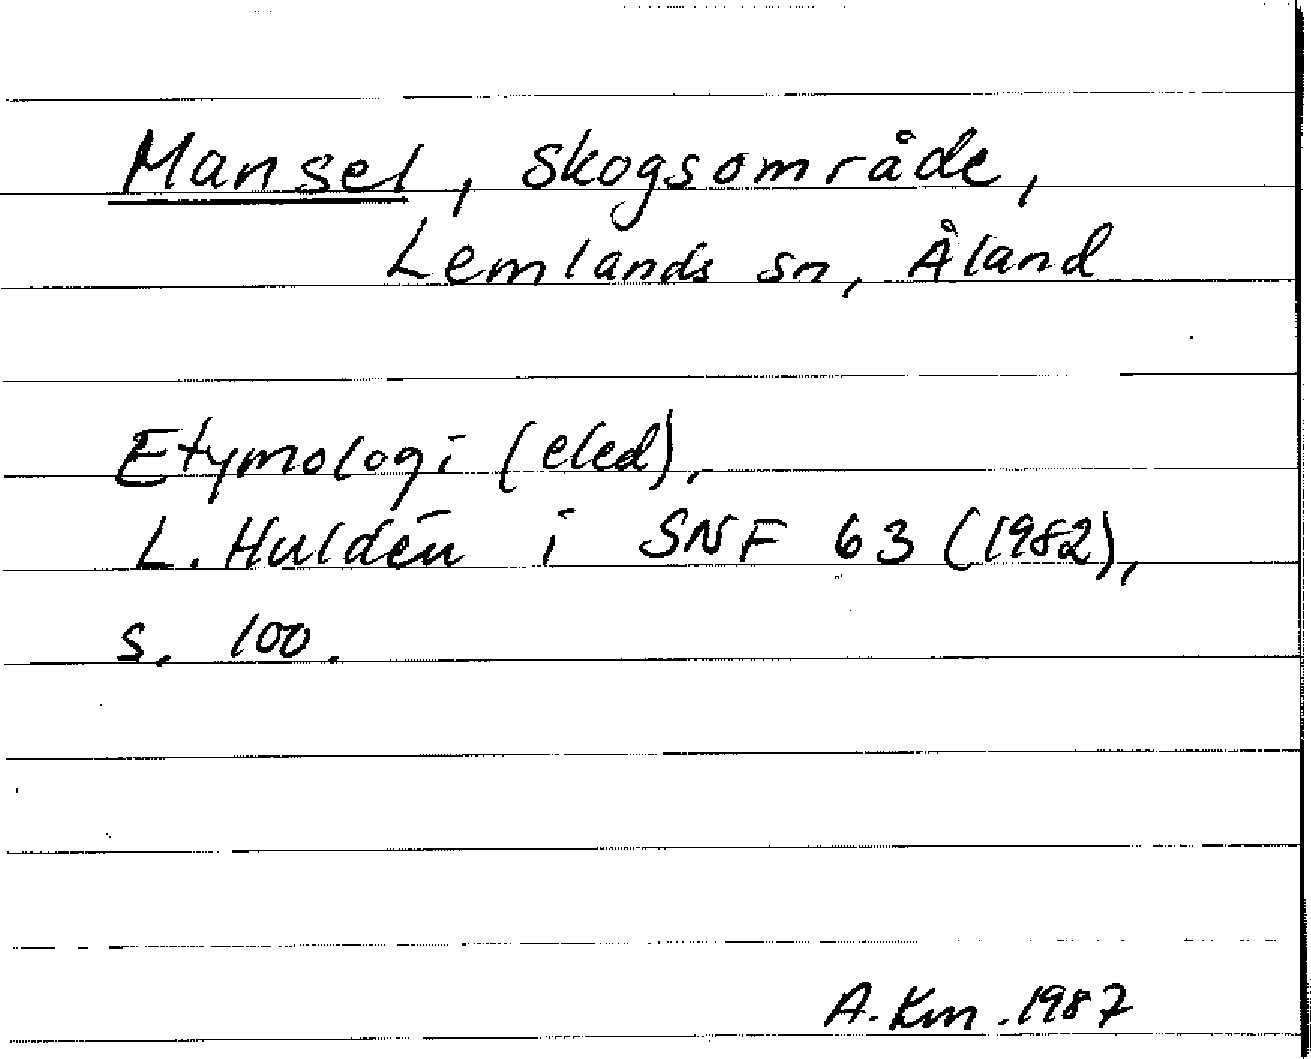 Mansel, skogsområde,
Lemlands sn, Åland
Etymologi (eled),
L. Huldén i SNF 63 (1982),
s. 100.
A. Km. 1987